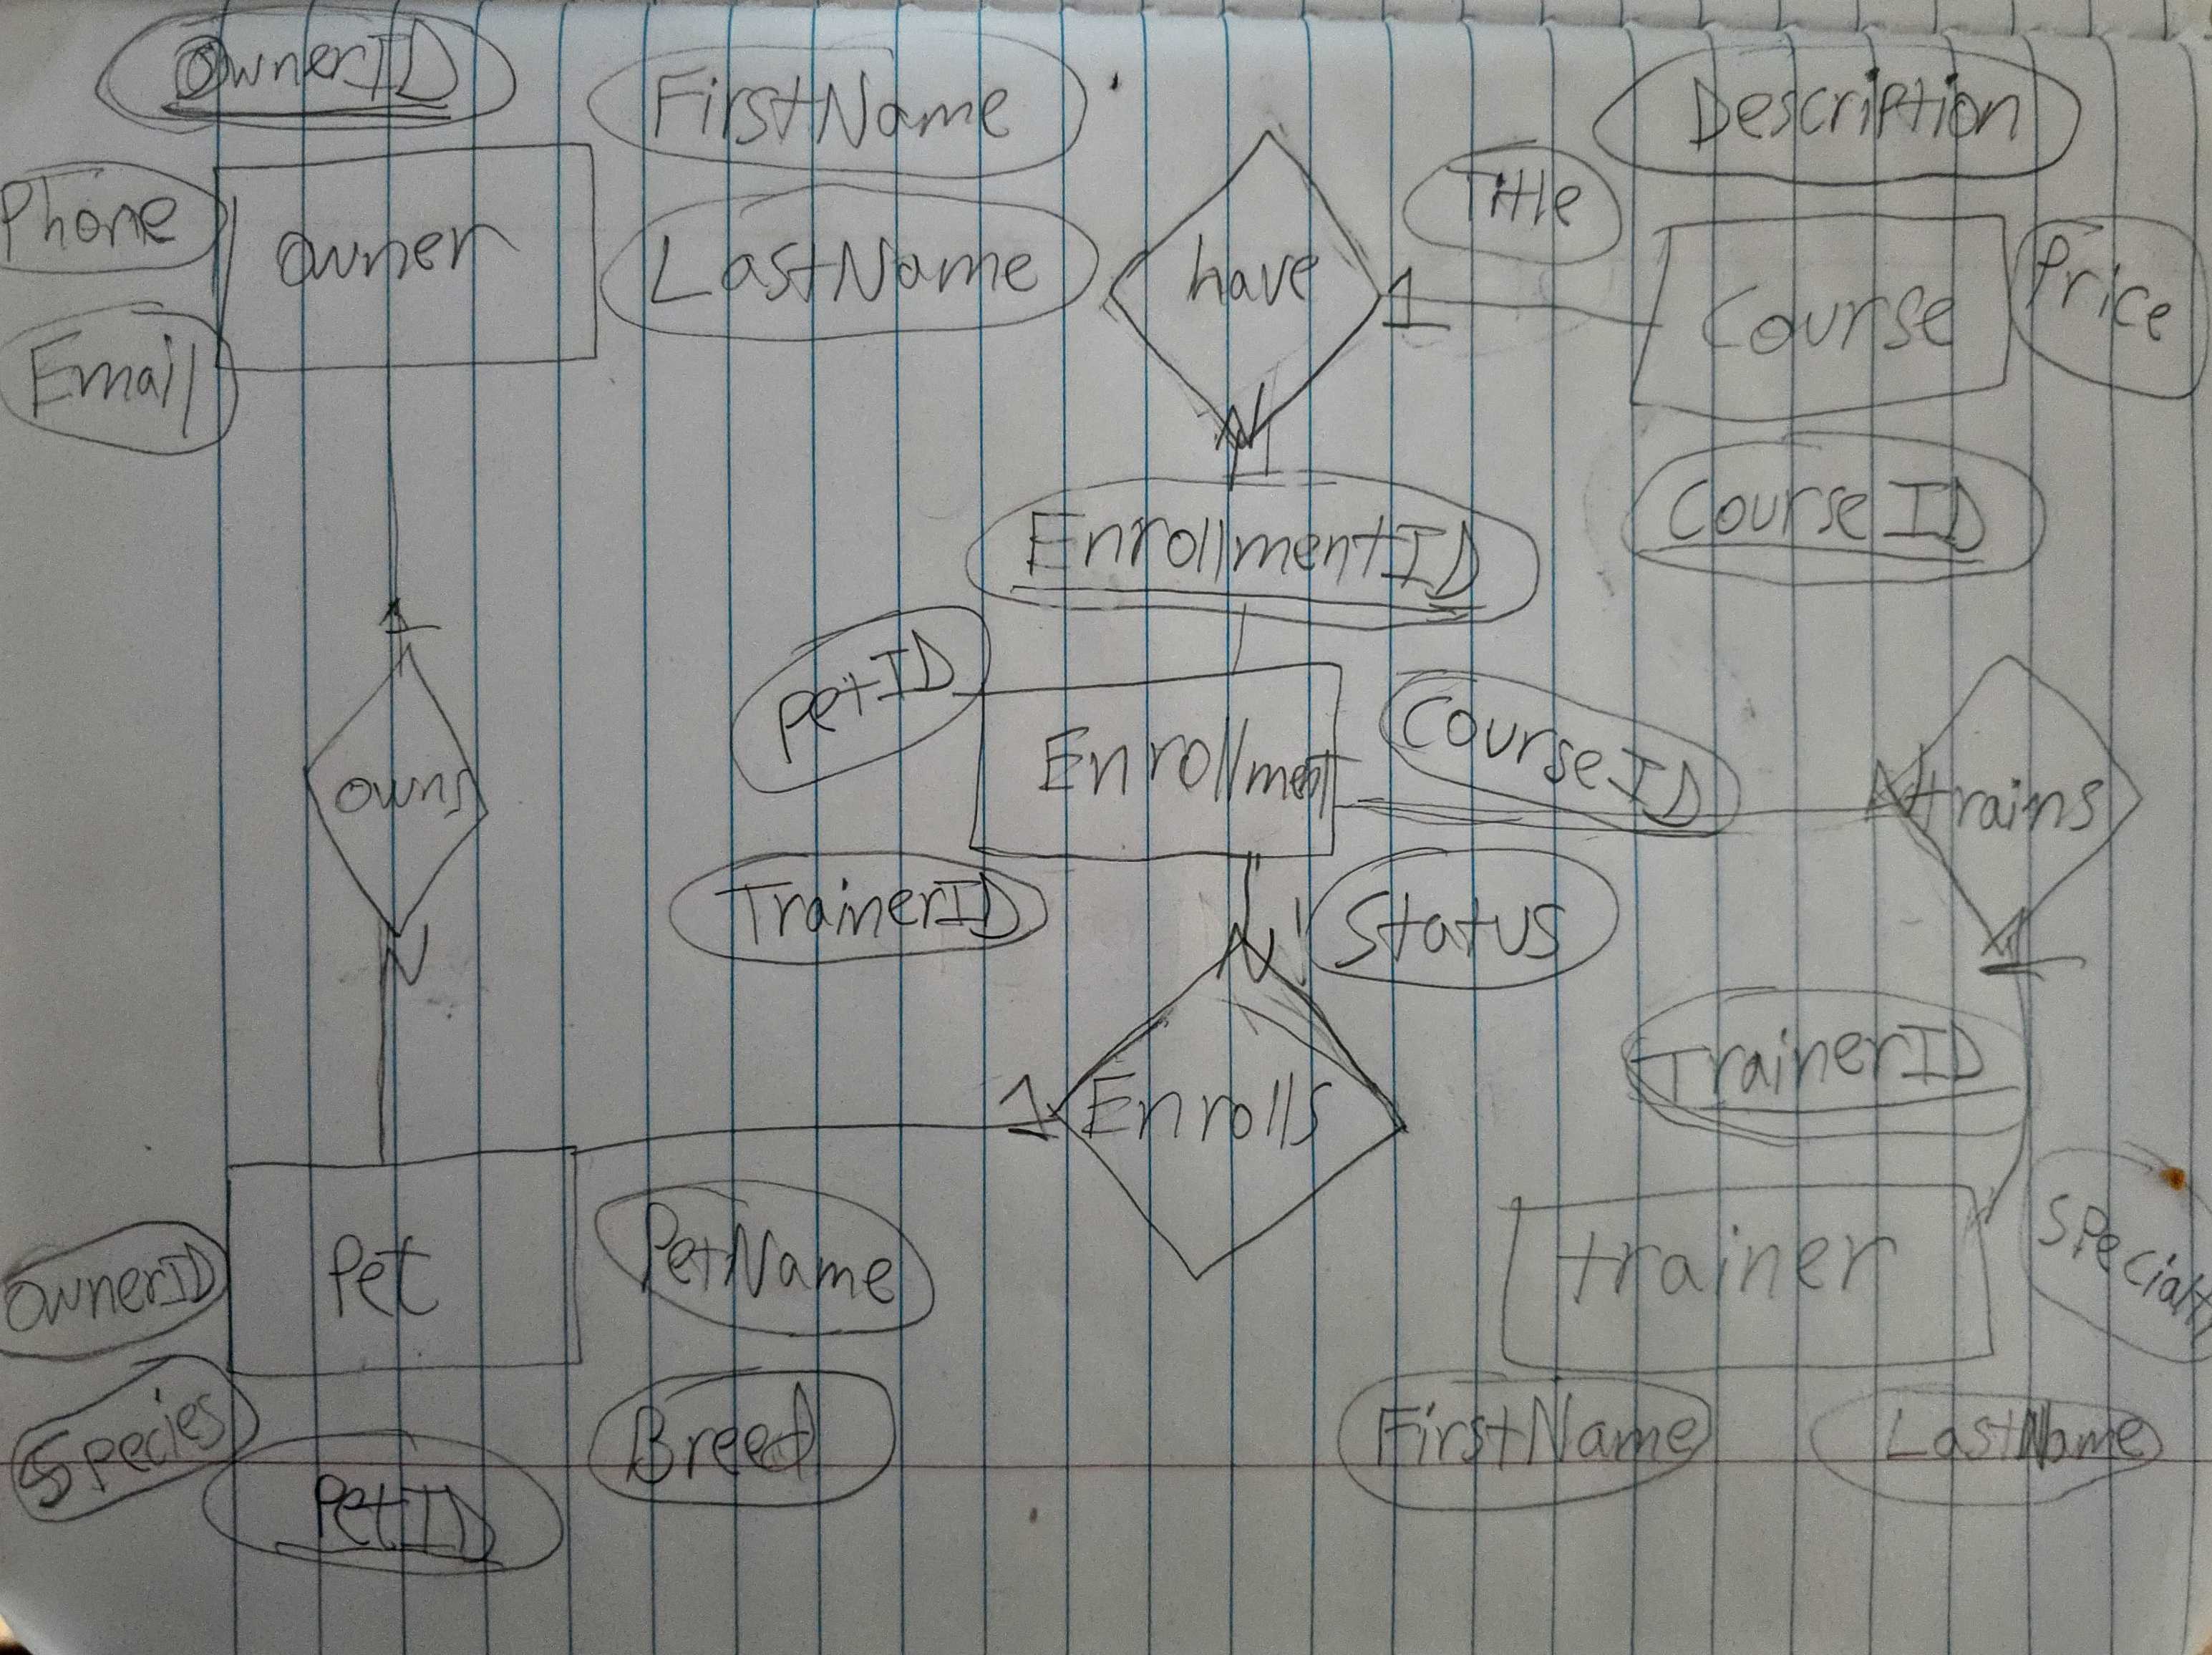 OwnerID
FirstName
Description
Phone
owner
LastName
have
Title
1
Course
Price
Email
N
CourseID
EnrollmentID
1
PetID
Enrollment
CourseID
owns
N
trains
TrainerID
Status
N
N
1
TrainerID
1
Enrolls
OwnerID
Pet
PetName
trainer
Specialty
Species
PetID
Breed
FirstName
LastName